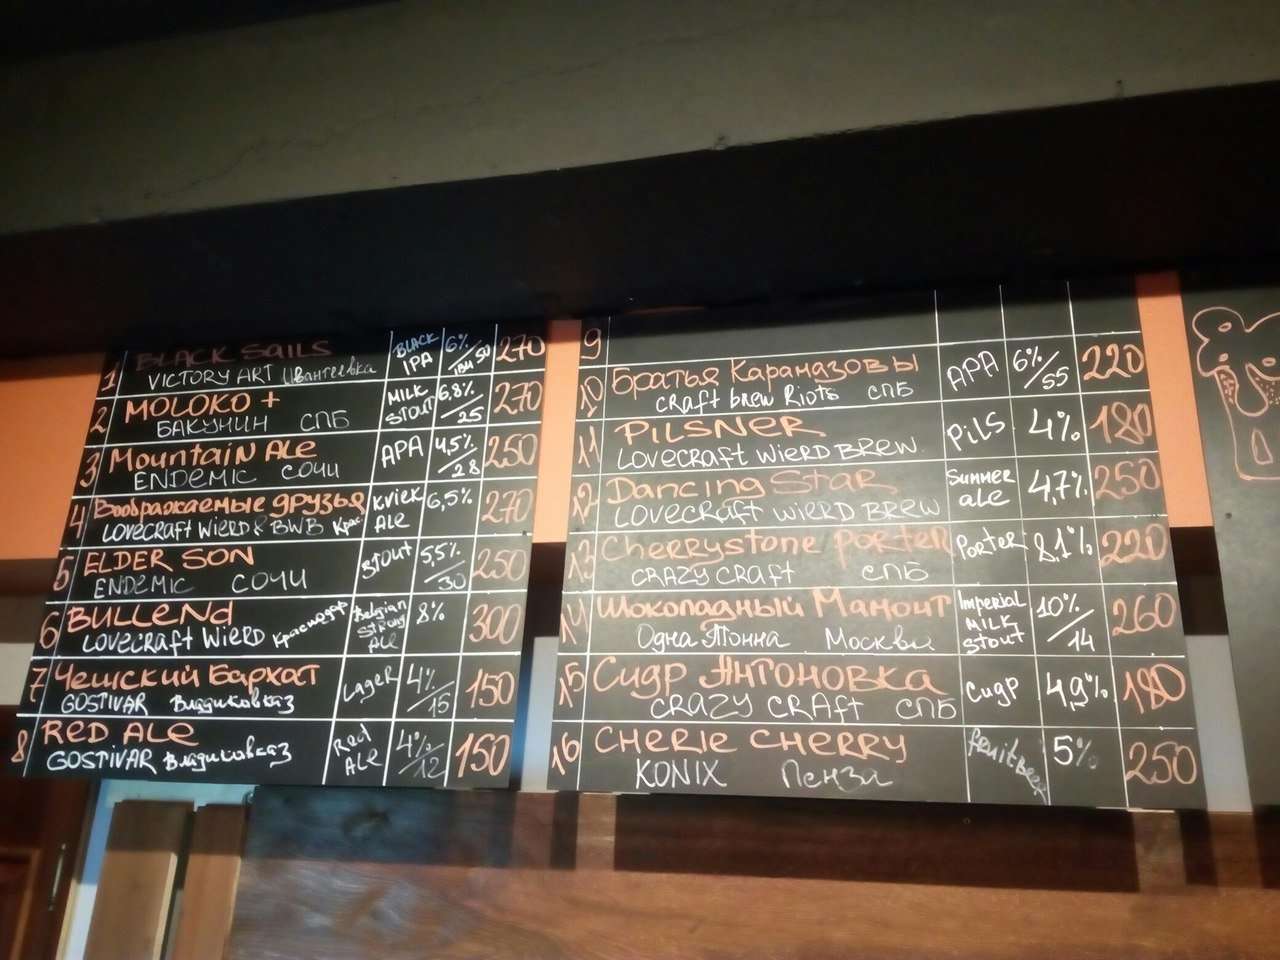 1 BLACK SAILS BLACK IPA 6% IBU 50 270
VICTORY ART Ивантеевка
2 MOLOKO + MILK STOUT 6,8% 25 270
БАКУНИН СПБ
3 MOUNTAIN ALE APA 4,5% 28 250
ENDEMIC СОЧИ
4 Воображаемые друзья KVIEK ALE 6,5% 270
LOVECRAFT WIERD & BWB Крас.
5 ELDER SON STOUT 5,5% 30 250
ENDEMIC СОЧИ
6 BULLEND Belgian STRONG ALE 8% 300
LOVECRAFT WIERD Краснодар
7 Чешский Бархат LAGER 4% 15 150
GOSTIVAR Владикавказ
8 RED ALE Red ALE 4% 12 150
GOSTIVAR Владикавказ
9
10 Братья Карамазовы APA 6% 55 220
CRAFT BREW RIOTS СПБ
11 PILSNER PILS 4% 180
LOVECRAFT WIERD BREW.
12 Dancing STAR Summer ale 4,7% 250
LOVECRAFT WIERD BREW
13 Cherrystone PORTER PORTER 8.1% 220
CRAZY CRAFT СПБ
14 Шоколадный Мамонт Imperial MILK STOUT 10% 14 260
Одна Тонна Москвы
15 Сидр Антоновка Сидр 4,9% 180
CRAZY CRAFT СПБ
16 CHERIE CHERRY fruit beer 5% 250
KONIX Пенза